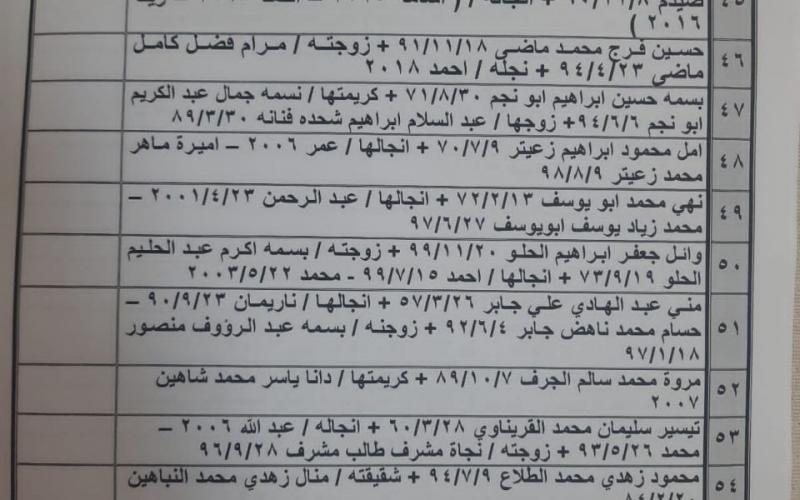 ٢٠١٦ )
٤٦ حسين فرج محمد ماضي ٩١/١١/١٨ + زوجته / مرام فضل كامل
ماضي ٩٤/٤/٢٣ + نجله / احمد ٢٠١٨
٤٧ بسمه حسين ابراهيم ابو نجم ٧١/٨/٣٠ + كريمتها / نسمه جمال عبد الكريم
ابو نجم ٩٤/٦/٦ + زوجها / عبد السلام ابراهيم شحده فنانه ٨٩/٣/٣٠
٤٨ امل محمود ابراهيم زعيتر ٧٠/٧/٩ + انجالها / عمر ٢٠٠٦ – اميرة ماهر
محمد زعيتر ٩٨/٨/٩
٤٩ نهي محمد ابو يوسف ٧٢/٢/١٣ + انجالها / عبد الرحمن ٢٠٠١/٤/٢٣ –
محمد زياد يوسف ابويوسف ٩٧/٦/٢٧
٥٠ وائل جعفر ابراهيم الحلو ٩٩/١١/٢٠ + زوجته / بسمه اكرم عبد الحليم
الحلو ٧٣/٩/١٩ + انجالها / احمد ٩٩/٧/١٥ - محمد ٢٠٠٣/٥/٢٢
٥١ مني عبد الهادي علي جابر ٥٧/٣/٢٦ + انجالها / ناريمان ٩٠/٩/٢٣ –
حسام محمد ناهض جابر ٩٢/٦/٤ + زوجته / بسمه عبد الرؤوف منصور
٩٧/١/١٨
٥٢ مروة محمد سالم الجرف ٨٩/١٠/٧ + كريمتها / دانا ياسر محمد شاهين
٢٠٠٧
٥٣ تيسير سليمان محمد القريناوي ٦٠/٣/٢٨ + انجاله / عبد الله ٢٠٠٦ –
محمد ٩٣/٥/٢٦ + زوجته / نجاة مشرف طالب مشرف ٩٦/٩/٢٨
٥٤ محمود زهدي محمد الطلاع ٩٤/٧/٩ + شقيقته / منال زهدي محمد النباهين